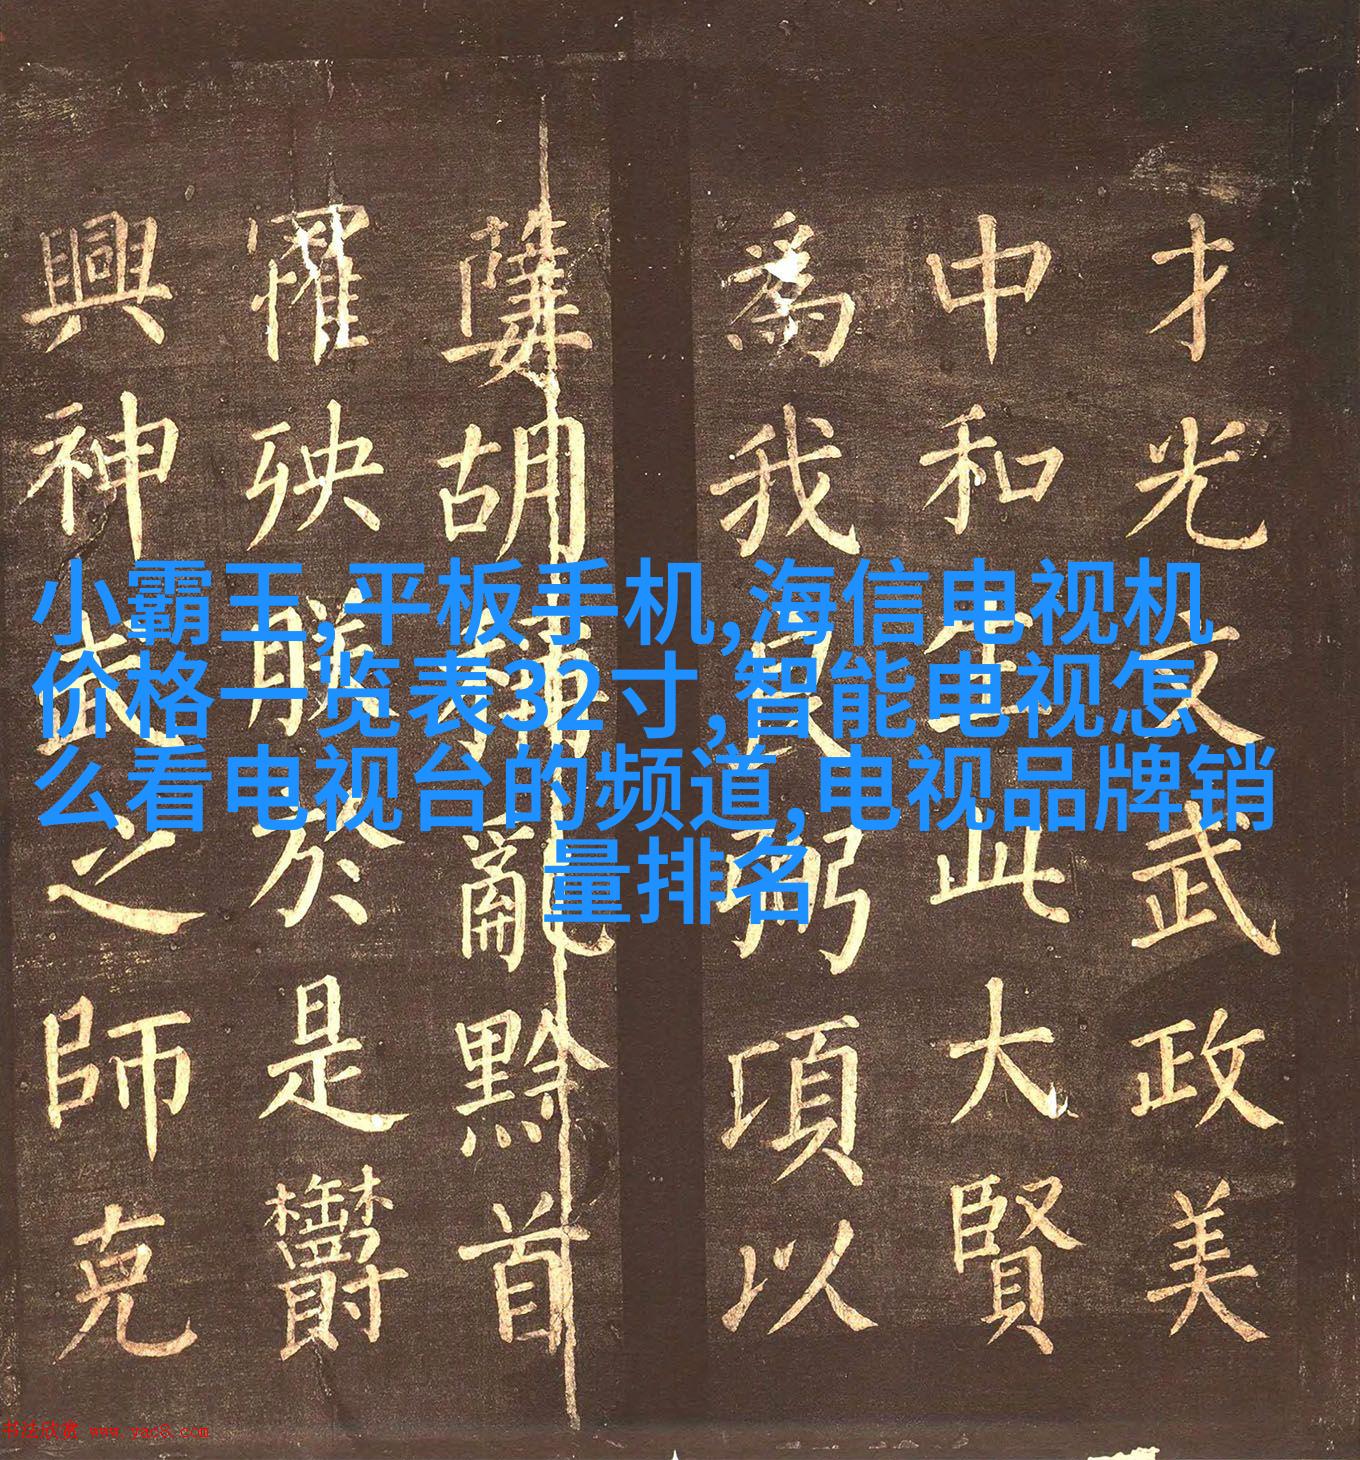 小霸王,平板手机,海信电视机
价格一览表32寸,智能电视怎
么看电视台的频道,电视品牌销
量排名
才光文武政美
中和生此大賢
爲我良弼項以
胡亂黔首
罹殃於是鬱
興神武之師克
书法欣赏 www.yac8.com